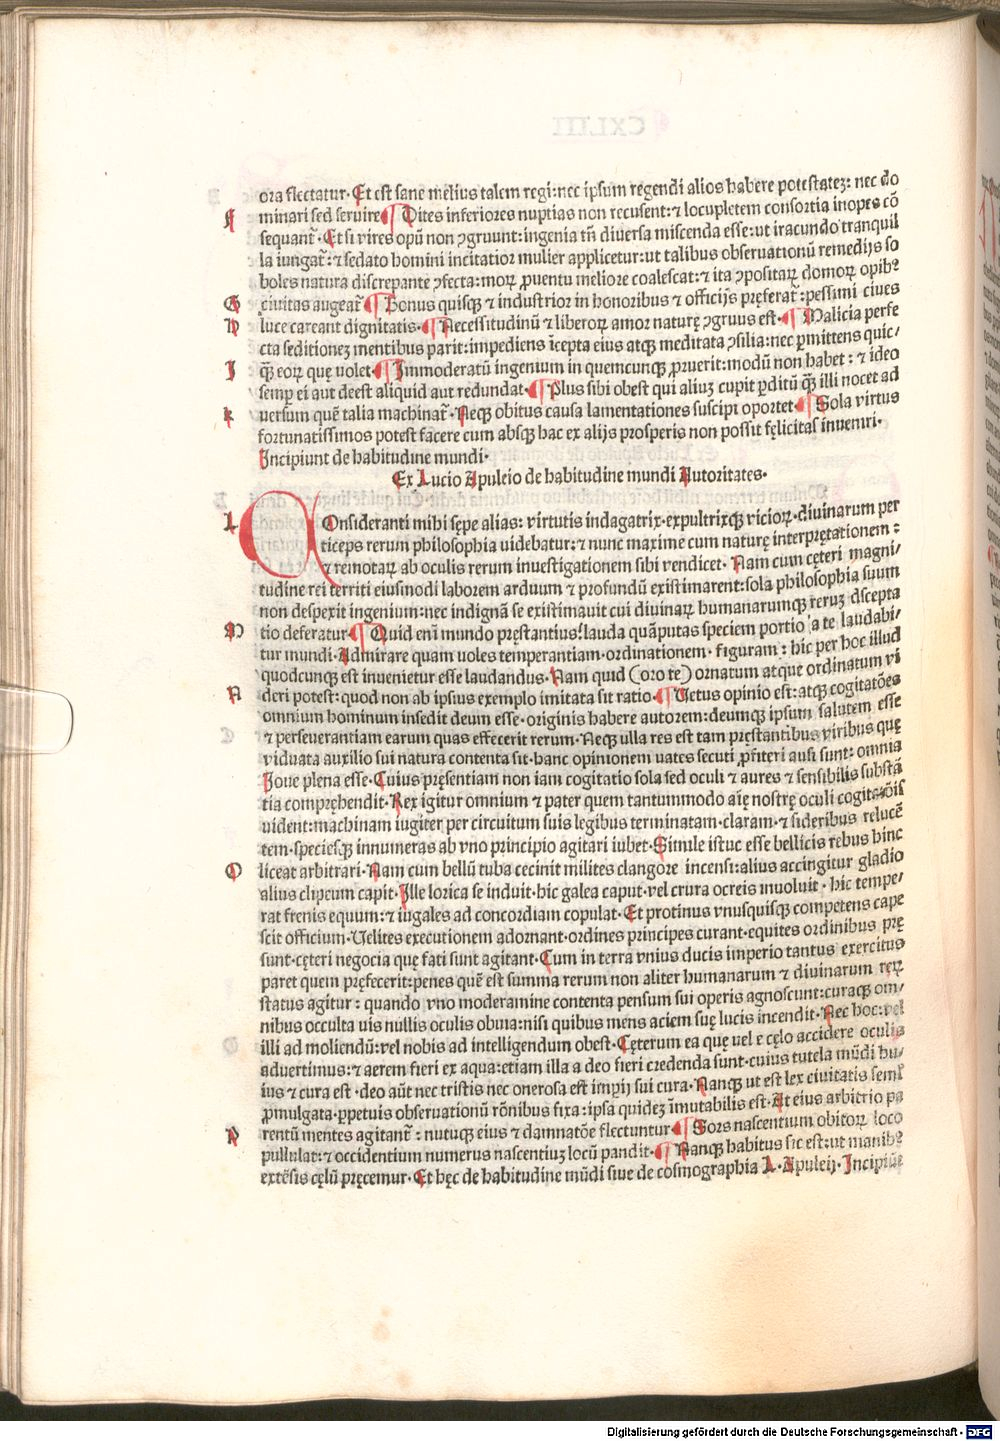 ora flectatur· Et est sane melius talem regi: nec ipsum regendi alios habere potestateʒ: nec do
F minari sed seruire ¶ Dites inferiores nuptias non recusent: ⁊ locupletem consortia inopes cō
sequant᷑· Et si vires opū non ꝯgruunt: ingenia tn̄ diuersa miscenda esse: ut iracundo tranquil
la iungat᷑: ⁊ sedato homini incitatior mulier applicetur: ut talibus obseruationū remedijs so
boles natura discrepante ꝯfecta: moꝝ ꝓuentu meliore coalescat: ⁊ ita ꝯpositaꝝ domoꝝ opibꝰ
G ciuitas augeat᷑ ¶ Bonus quisqꝫ ⁊ industrior in honoribus ⁊ officijs pręferat᷑: pessimi ciues
H luce careant dignitatis· ¶ Necessitudinū ⁊ liberoꝝ amor naturę ꝯgruus est· ¶ Malicia perfe
cta seditioneʒ mentibus parit: impediens īcepta eius atqꝫ meditata ꝯsilia: nec ꝑmittens quic/
I qꝫ̄ eoꝝ quę uolet ¶ Immoderatū ingenium in quemcunqꝫ ꝓruerit: modū non habet: ⁊ ideo
semꝑ ei aut deest aliquid aut redundat· ¶ Plus sibi obest qui aliuʒ cupit ꝑditū qꝫ̄ illi nocet ad
K uersum quē talia machinat᷑· Neqꝫ obitus causa lamentationes suscipi oportet ¶ Sola virtus
fortunatissimos potest facere cum absqꝫ hac ex alijs prosperis non possit fęlicitas inueniri·
Incipiunt de habitudine mundi·
Ex Lucio Apuleio de habitudine mundi Autoritates·
L COnsideranti mihi sępe alias: virtutis indagatrix· expultrixqꝫ vicioꝝ· diuinarum per
ticeps rerum philosophia uidebatur: ⁊ nunc maxime cum naturę interpretationem:
⁊ remotaꝝ ab oculis rerum inuestigationem sibi vendicet· Nam cum cęteri magni/
tudine rei territi eiusmodi laborem arduum ⁊ profundū existimarent: sola philosophia suum
non despexit ingenium: nec indignā se existimauit cui diuinaꝝ humanarumqꝫ reruʒ dscepta
M tio deferatur ¶ Quid eni mundo pręstantius? lauda quāputas speciem portio a te laudabi/
tur mundi· Admirare quam uoles temperantiam· ordinationem· figuram: hic per hoc illud
quodcunqꝫ est inuenietur esse laudandus· Nam quid (oro te) ornatum atque ordinatum vi
N deri potest: quod non ab ipsius exemplo imitata sit ratio· ¶ Uetus opinio est: atqꝫ cogitatōes
omnium hominum insedit deum esse· originis habere autorem: deumqꝫ ipsum salutem esse
⁊ perseuerantiam earum quas effecerit rerum· Neqꝫ ulla res est tam pręstantibus viribus quę
viduata auxilio sui natura contenta sit· hanc opinionem uates secuti ꝓfiteri ausi sunt: omnia
Ioue plena esse· Cuius pręsentiam non iam cogitatio sola sed oculi ⁊ aures ⁊ sensibilis substā
tia compręhendit· Rex igitur omnium ⁊ pater quem tantummodo aīę nostrę oculi cogitatōis
uident: machinam iugiter per circuitum suis legibus terminatam· claram· ⁊ sideribus relucē
tem· speciesqꝫ innumeras ab vno principio agitari iubet· Simile istuc esse bellicis rebus hinc
O liceat arbitrari· Nam cum bellū tuba cecinit milites clangore incensi: alius accingitur gladio
alius clipeum capit· Ille lorica se induit· hic galea caput· vel crura ocreis inuoluit· hic tempe/
rat frenis equum: ⁊ iugales ad concordiam copulat· Et protinus vnusquisqꝫ competens cape
scit officium· Uelites executionem adornant· ordines principes curant· equites ordinibus prę
sunt· cęteri negocia quę fati sunt agitant· Cum in terra vnius ducis imperio tantus exercitus
paret quem pręfecerit: penes quē est summa rerum non aliter humanarum ⁊ diuinarum reꝝ
status agitur: quando vno moderamine contenta pensum sui operis agnoscunt: curaqꝫ om/
nibus occulta uis nullis oculis obuia: nisi quibus mens aciem suę lucis incendit· Nec hoc: vel
illi ad moliendū: vel nobis ad intelligendum obest· Cęterum ea que uel e cęlo accidere oculis
aduertimus: ⁊ aerem fieri ex aqua: etiam illa a deo fieri credenda sunt· cuius tutela mūdi hu/
ius ⁊ cura est· deo aūt nec tristis nec onerosa est impij sui cura· Nanqꝫ ut est lex ciuitatis semꝑ
ꝓmulgata· ꝑpetuis obseruationū rōnibus fixa: ipsa quideʒ īmutabilis est· At eius arbitrio pa
P rentū mentes agitant᷑: nutuqꝫ eius ⁊ damnatōe flectuntur ¶ Sors nascentium obitoꝝ loco
pullulat: ⁊ occidentium numerus nascentiuʒ locū pandit· ¶ Nanqꝫ habitus sic est: ut manibꝰ
extēsis cęlū pręcemur· Et hęc de habitudine mūdi siue de cosmographia L· Apuleij· Incipiūt
Digitalisierung gefördert durch die Deutsche Forschungsgemeinschaft - DFG